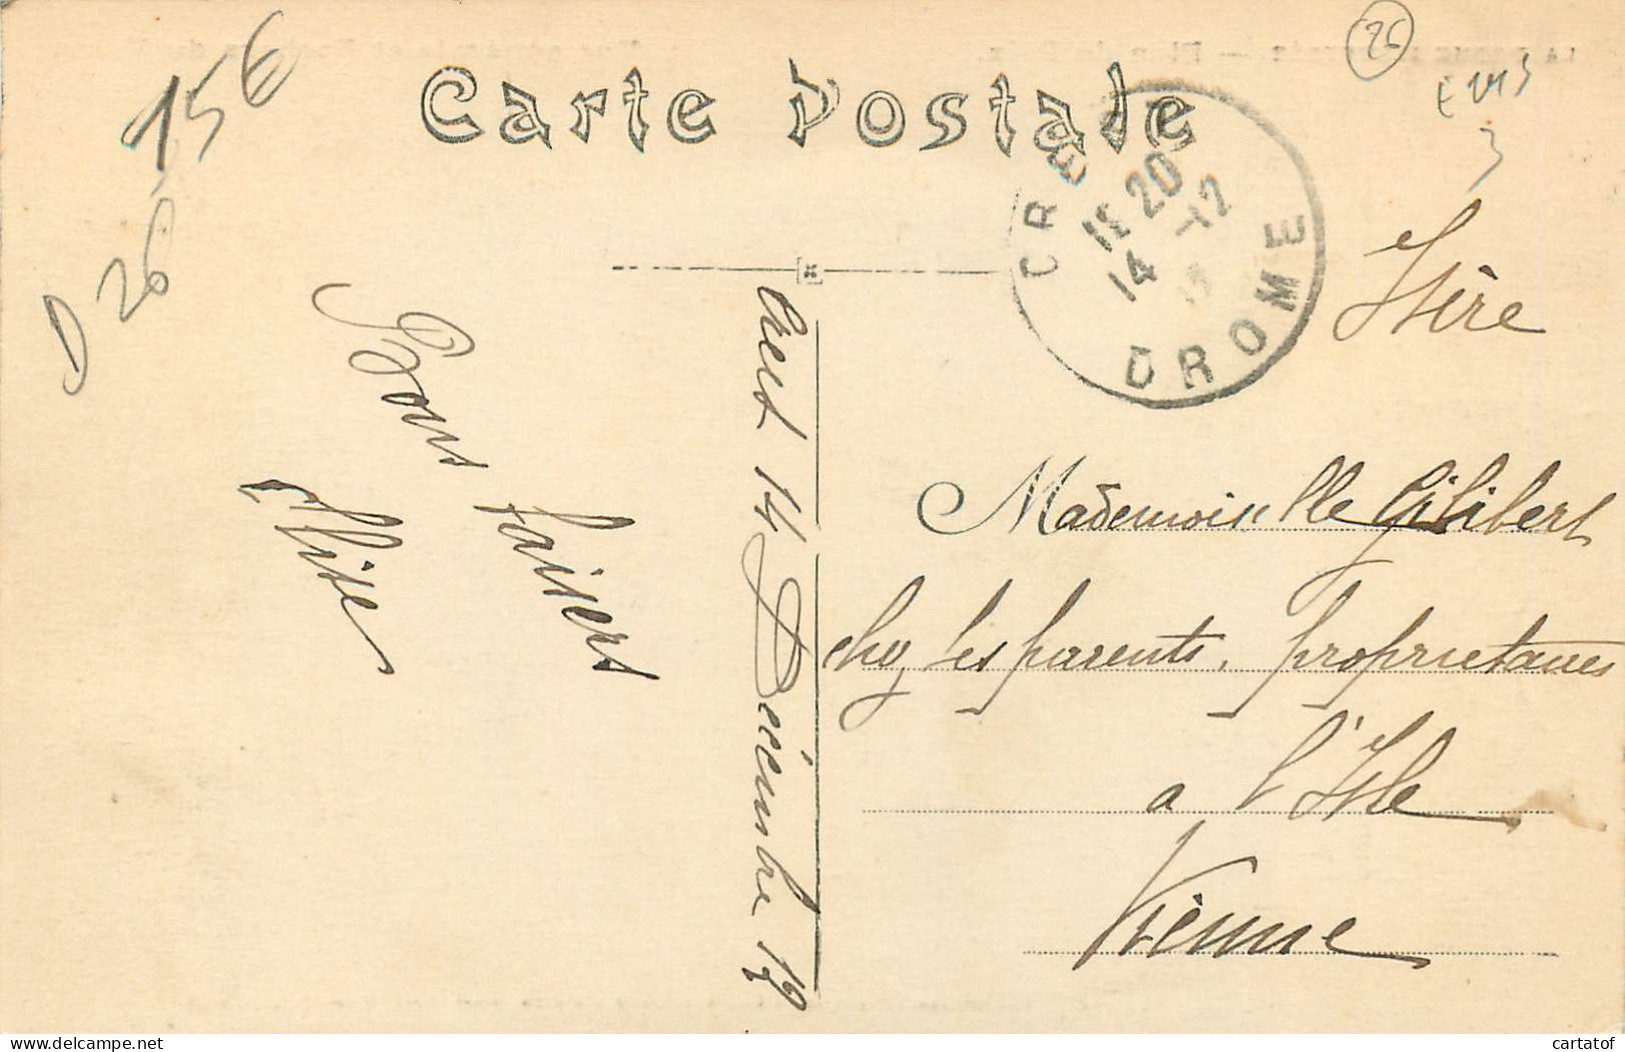 Carte Postale
15€
D 26
26
3
CREST
11 20
14 -12
DROME
Isère
Crest 14 Décembre 19
Bons baisers
Elise
Mademoiselle Gilibert
chez ses parents, propriétaires
a l'Isle
Vienne
delcampe.net
cartatof